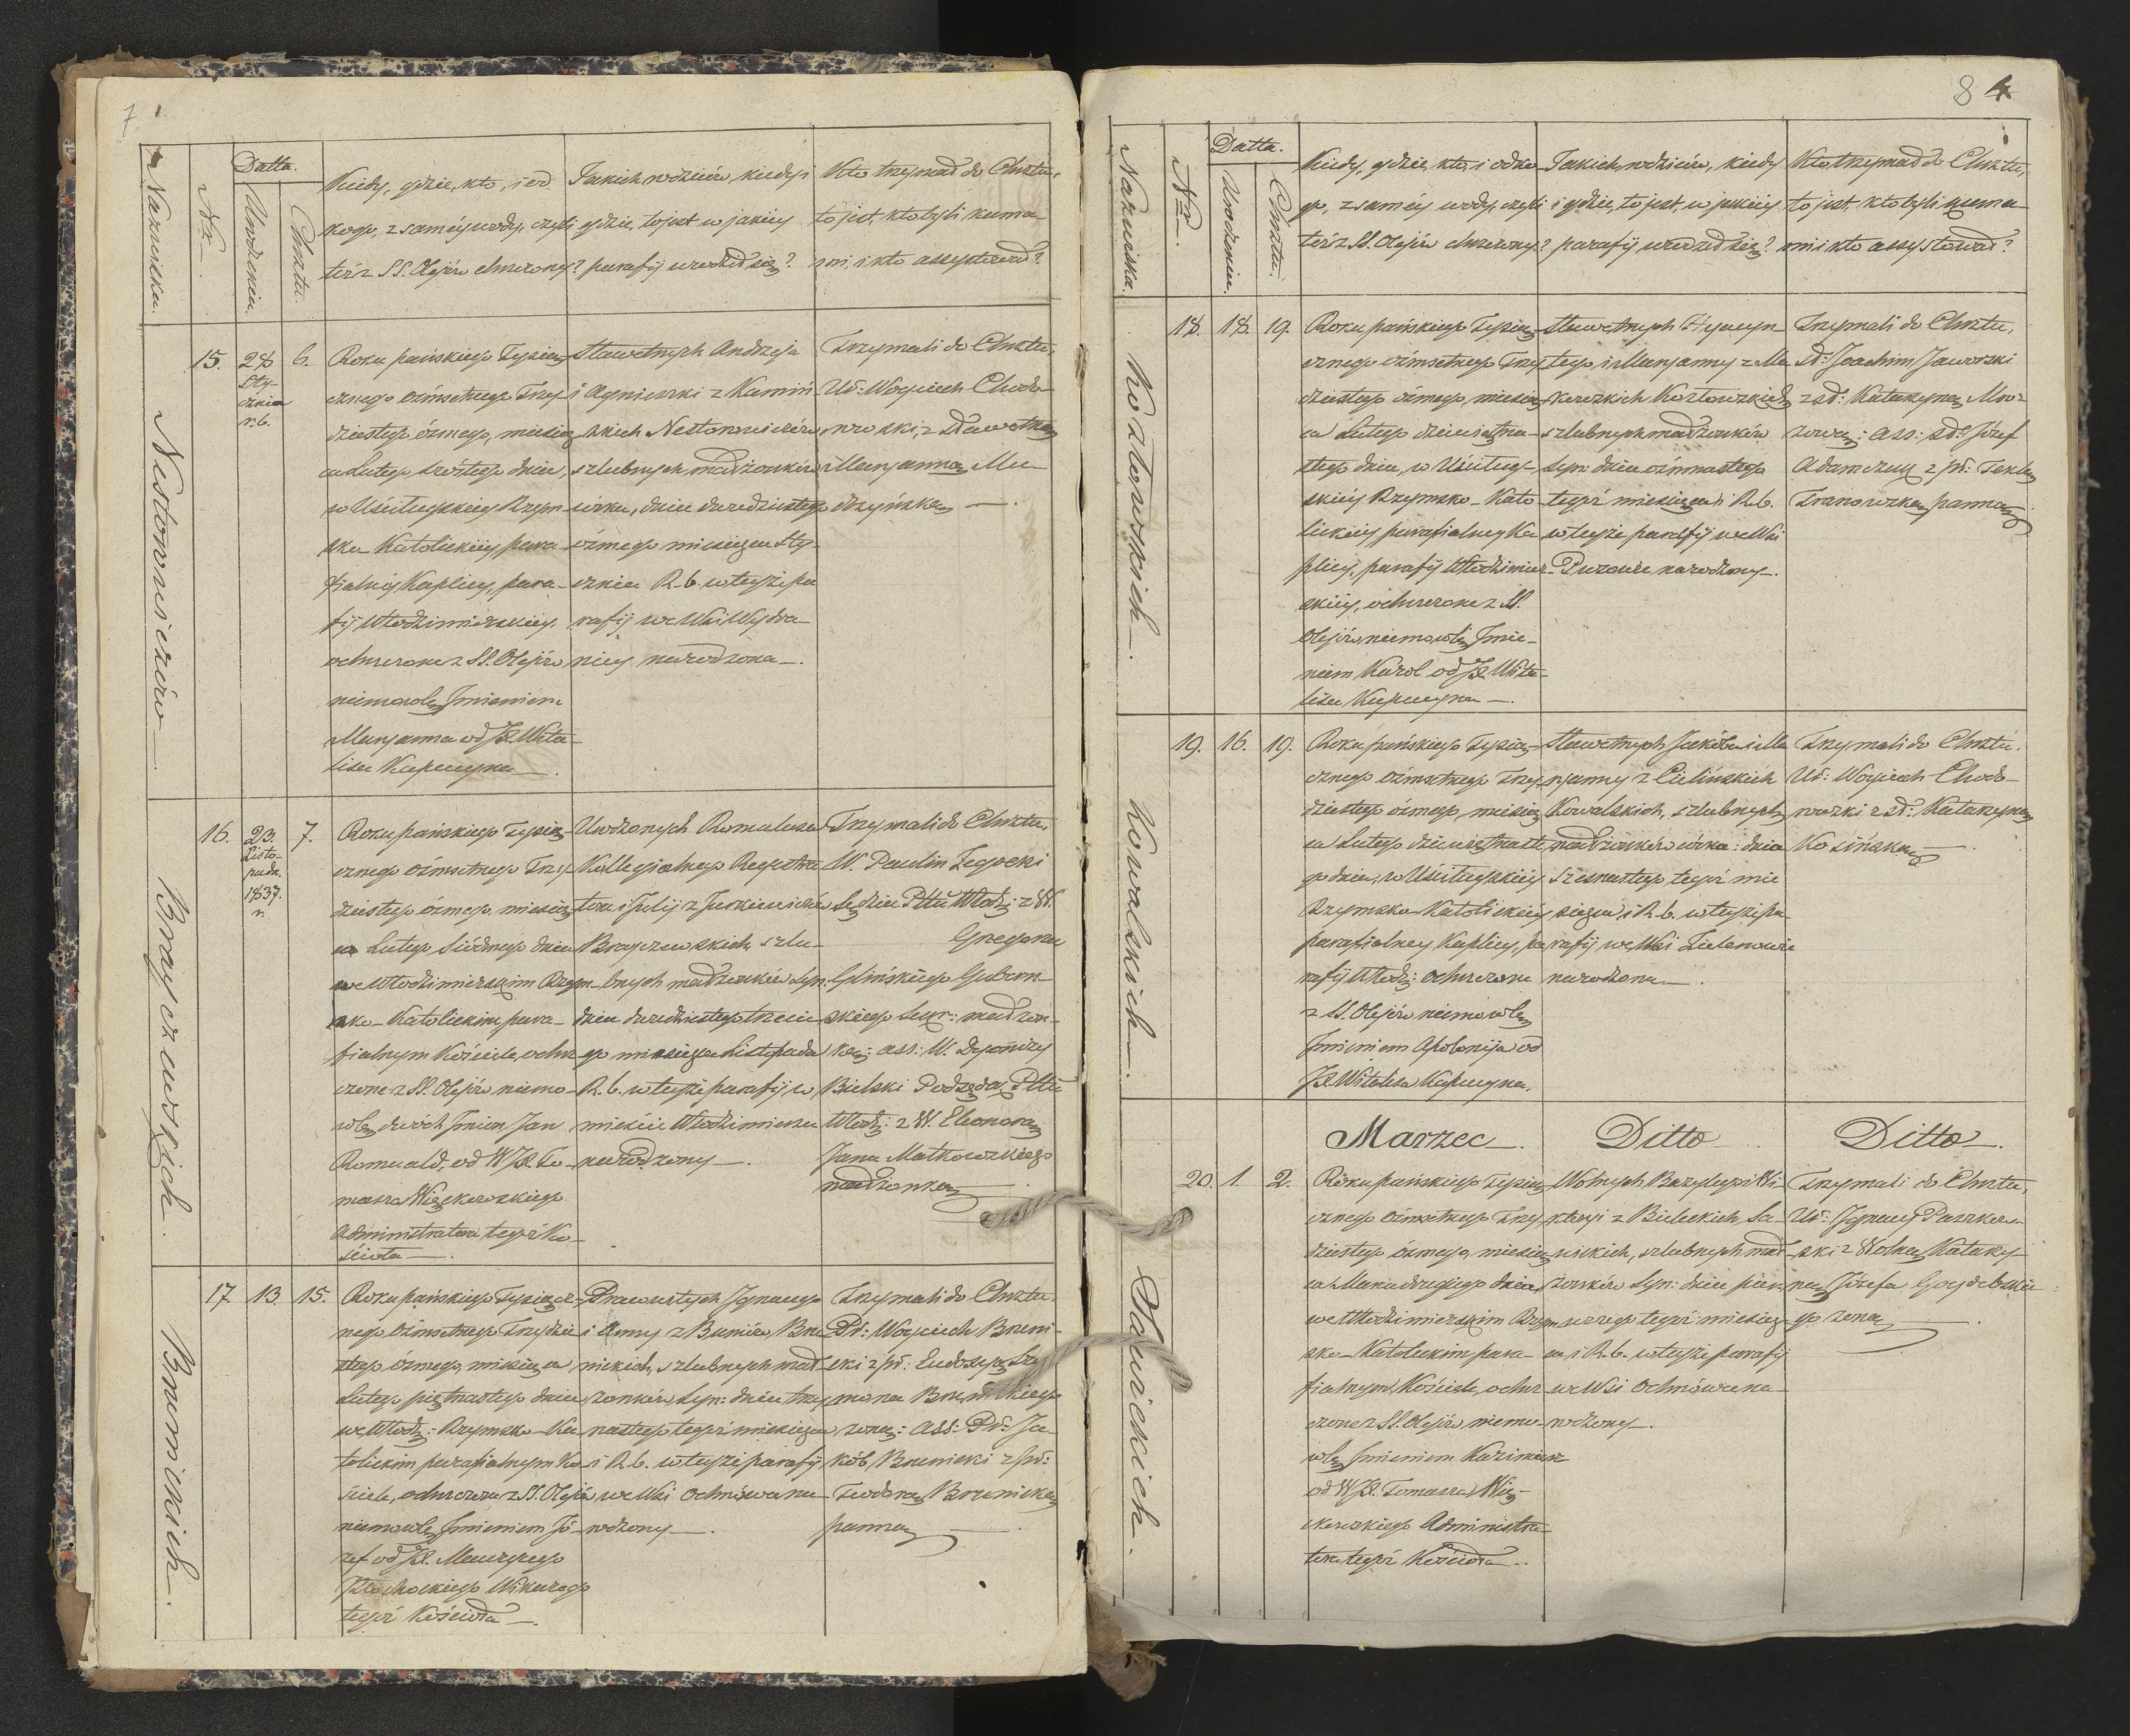 7
Nazwiska.
Nr.
Datta.
Urodzenia.
Chrztu.
Kiedy, gdzie, kto, i od
kogo, z saméj wody, czyli
też z SS. Olejów chrzczony?
Jakich rodziców, kiedy i
gdzie, to jest w jakiéy
parafij urodził się?
Kto trzymał do Chrztu,
to jest, kto byli kuma-
mi, i kto assystował?
Nestorowiczów
15.
28
Sty-
cznia
r. b.
6.
Roku pańskiego Tysiąc-
cznego ośmsetnego Trzy-
dziestego ósmego, miesią-
ca Lutego szóstego dnia,
w Uściługskiéy Rzym-
sko Katolickiéy para-
fialnéy Kaplicy, para-
fij Włodzimierskiéy.
ochrzczone z SS. Olejów
niemowle Imieniem
Maryanna od JX. Wita-
lisa Kapucyna.
Sławetnych Andrzeja
i Agnieszki z Kamiń-
skich Nestorowiczów
szlubnych małżonków
córka, dnia dwudziestego
ósmego miesiąca Sty-
cznia R. b. w tejże pa-
rafij we Wsi Wydra-
nicy narodzona.
Trzymali do Chrztu,
Uł: Woyciech Chodo-
rowski, z Sławetną
Maryanną Mu-
dzyńską.
Brayczewskich.
16.
23.
Listo-
pada
1837.
r.
7.
Roku pańskiego Tysią-
cznego ośmsetnego Trzy-
dziestego ósmego, miesią-
ca Lutego Siódmego dnia
we Włodzimierskim Rzym-
sko-Katolickim para-
fialnym Kościele, ochrz-
czone z SS. Olejów niemo-
wle dwóch Imion Jan
Romuald, od WJX. To-
masza Więckowskiego
Administratora tegoż Ko-
ścioła.
Urodzonych Romualda
Kollegialnego Regestra-
tora i Julij z Jurkiewiczów
Brayczewskich szlu-
bnych małżonków Syn.
dnia dwudziestego trzecie-
go miesiąca Listopada
R. b. w tejże parafij w
mieście Włodzimierzu
narodzony.
Trzymali do Chrztu,
W. Paulin Zagocki
Sędzia Pttu Włodz: z W.
Grzegorza
Glińskiego Gubern-
skiego Sekr: małżon-
ką: ass: W. Dyonizy
Bielski Podsędek Pttu
Włodz: z W. Eleonorą
Jana Małkowskiego
małżonką
Brunickich.
17.
13.
15.
Roku pańskiego Tysiącz-
nego Ośmsetnego Trzydzie-
stego ósmego, miesiąca
Lutego piętnastego dnia
we Włodz: Rzymsko-Ka-
tolickim parafialnym Ko-
ściele, ochrzczone z SS. Olejów
niemowle Imieniem Jó-
zef od JX. Maurycego
Kłochockiego Wikarego
tegoż Kościoła.
Prawowitych Ignacego
i Anny z Buniów Bru-
nickich, szlubnych mał-
żonków Syn: dnia trzy-
nastego tegoż miesiąca
i R. b. w tejże parafij
we Wsi Ochnówce na-
rodzony.
Trzymali do Chrztu,
Pr: Woyciech Bruni-
cki z pr: Eudoxyą Szy-
mona Brunickiego
żoną: Ass: Pr: Ja-
kób Brunicki z pr:
Teodorą Brunicką
panną
8 4
Nazwiska.
Nr.
Datta.
Urodzenia.
Chrztu.
Kiedy, gdzie, kto, i od ko-
go, z saméy wody, czyli
też z SS. Olejów chrzczony?
Jakich rodziców, kiedy
i gdzie, to jest, w jakiéy
parafij urodził się?
Kto trzymał do Chrztu,
to jest, kto byli kuma-
mi i kto assystował?
Kozłowskich.
18.
18.
19.
Roku pańskiego Tysią-
cznego ośmsetnego Trzy-
dziestego ósmego, miesią-
ca Lutego dziewiętna-
stego dnia, w Uściług-
skiéy Rzymsko-Kato-
lickiéy parafialney Ka-
plicy, parafij Włodzimier-
skiéy, ochrzczone z SS.
Olejów niemowle Imie-
niem Karol od JX. Wita-
lisa Kapucyna.
Sławetnych Hyacyn-
tego i Maryanny z Ma-
kowskich Kozłowskich
szlubnych małżonków
Syn: dnia ośmnastego
tegoż miesiąca i R. b.
w tejże parafij we Wsi
Puzowie narodzony.
Trzymali do Chrztu,
Sł: Joachim Jaworski
z sł: Katarzyną Mro-
zową: ass: sł: Józef
Adamczuk z pł: Teklą
Tranowską panną
Kowalskich.
19.
16.
19.
Roku pańskiego Tysią-
cznego ośmsetnego Trzy-
dziestego ósmego, miesią-
ca Lutego dziewiętnaste-
go dnia, w Uściługskiéy
Rzymsko-Katolickiéy
parafialney Kaplicy, pa-
rafij Włodz: ochrzczone
z SS. Olejów niemowle
Imieniem Apolonija od
JX. Witalisa Kapucyna.
Sławetnych Jakóba i Ma-
ryanny z Cielińskich
Kowalskich, szlubnych
małżonków córka: dnia
Szesnastego tegoż mie-
siąca, i R. b. w tejże pa-
rafij we Wsi Zielenowie
narodzona.
Trzymali do Chrztu,
Uł: Woyciech Chodo-
rowski z sł: Katarzyną
Kosińską
Marzec.
Ditto
Ditto.
Sawickich.
20.
1.
2.
Roku pańskiego Tysią-
cznego ośmsetnego Trzy-
dziestego ósmego, miesią-
ca Marca drugiego dnia,
we Włodzimierskim Rzym-
sko-Katolickim para-
fialnym Kościele, ochrz-
czone z SS. Olejów niemo-
wle Imieniem Kazimierz
od WJX. Tomasza Wię-
ckowskiego Administra-
tora tegoż Kościoła.
Wolnych Bazylego i Wi-
ktoryi z Bieleckich Sa-
wickich, szlubnych mał-
żonków Syn: dnia pier-
wszego tegoż miesią-
ca i R. b. w tejże parafij
we Wsi Ochnówce na-
rodzony.
Trzymali do Chrztu,
Uł: Ignacy Paszkow-
ski z Wolną Katarzy-
ną Józefa Goydebskie-
go żoną